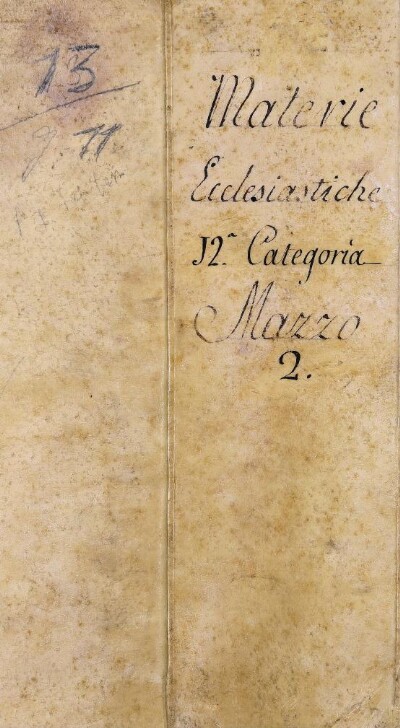 13
Materie
Ecclesiastiche
12.ª Categoria
Mazzo
2.